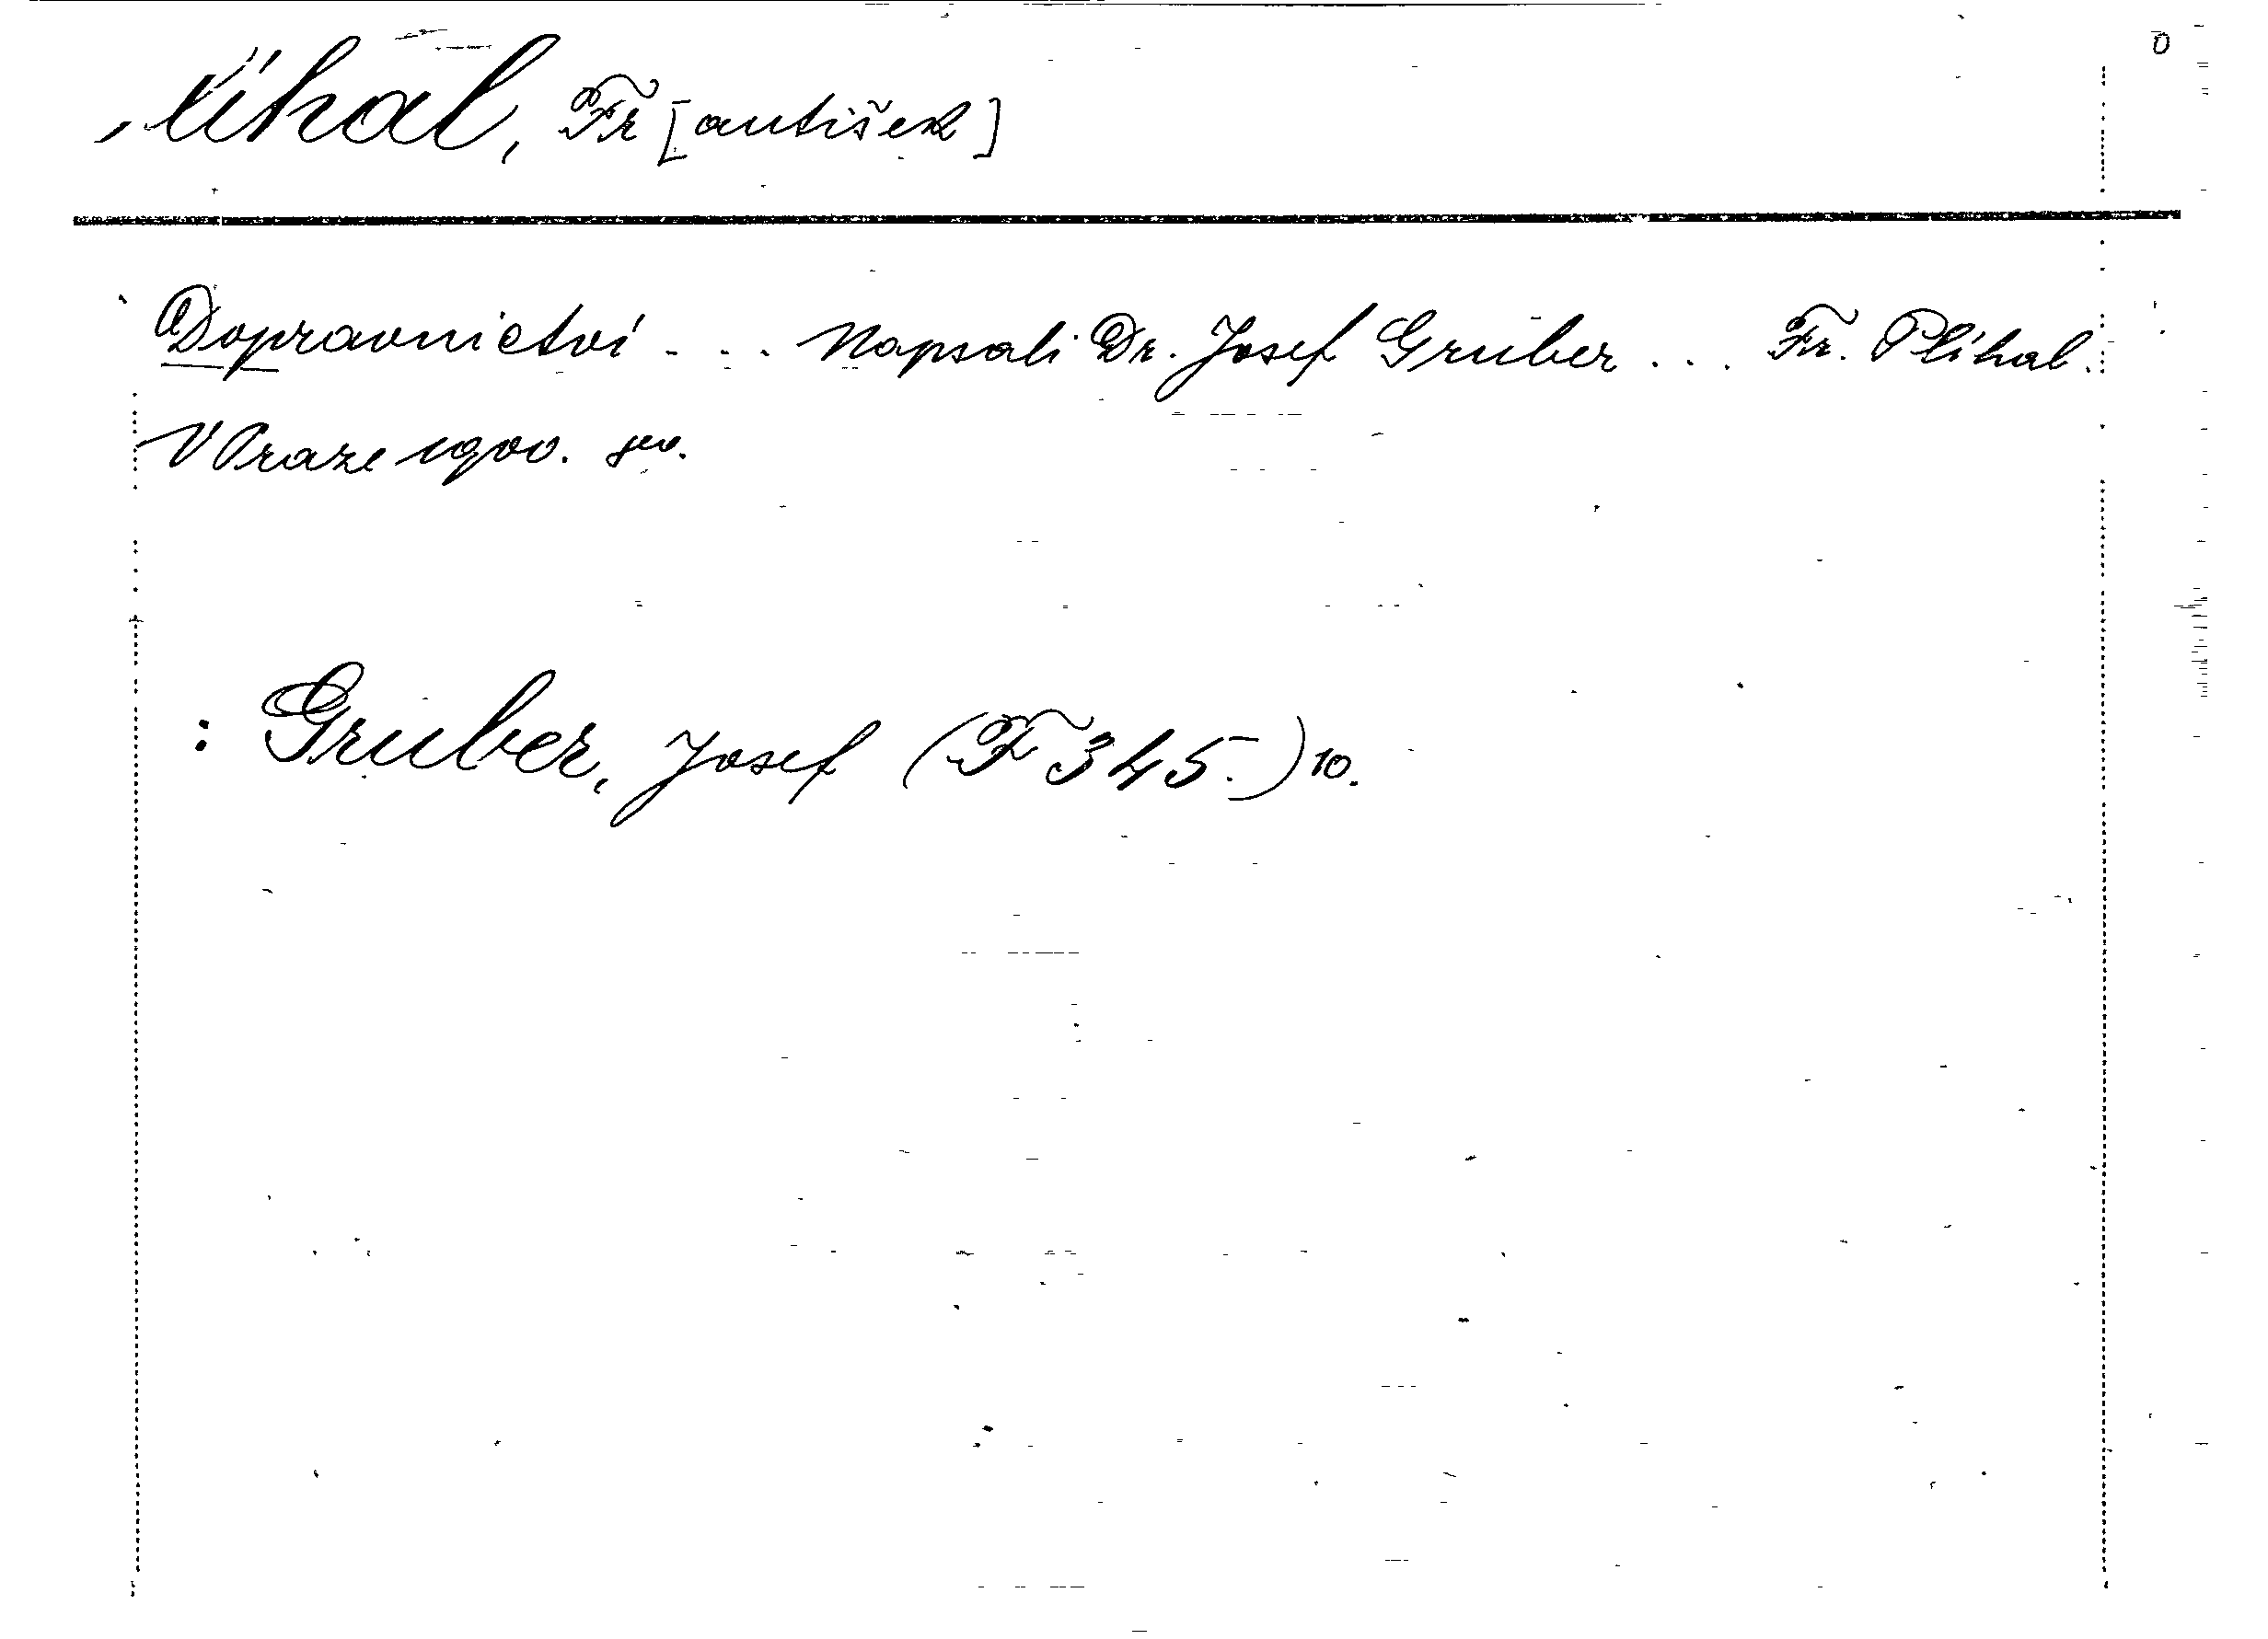 Plíhal, Fr[antišek]
Dopravnictví ... Napsali Dr. Josef Gruber ... Fr. Plíhal.
V Praze 1900. 8vo.
: Gruber, Josef (F 345.) 10.